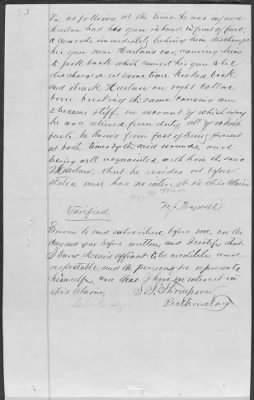 as follows at the time he was injured
Harlan had his gun in hand in front of face
rearwards immediately behind him discharged
his gun near Harlans ear, causing him
to pull back which caused his gun to be
discharged at same time kicked back
and struck Harlan on right collar
bone breaking the same causing an
stiff on account of which injury
he was relieved from duty, all of which
facts he knows from fact of being present
at both times of the said wounds, and
being well acquainted with him the said
Harlan, that he resides as before
stated and has no interest in this Claim
Verified
Sworn to and subscribed before me, on the
day and year before written, and I certify that
I know affiant to be creditable and
respectable and the person he represents
himself, and that I have no interest in
this claim
Thompson